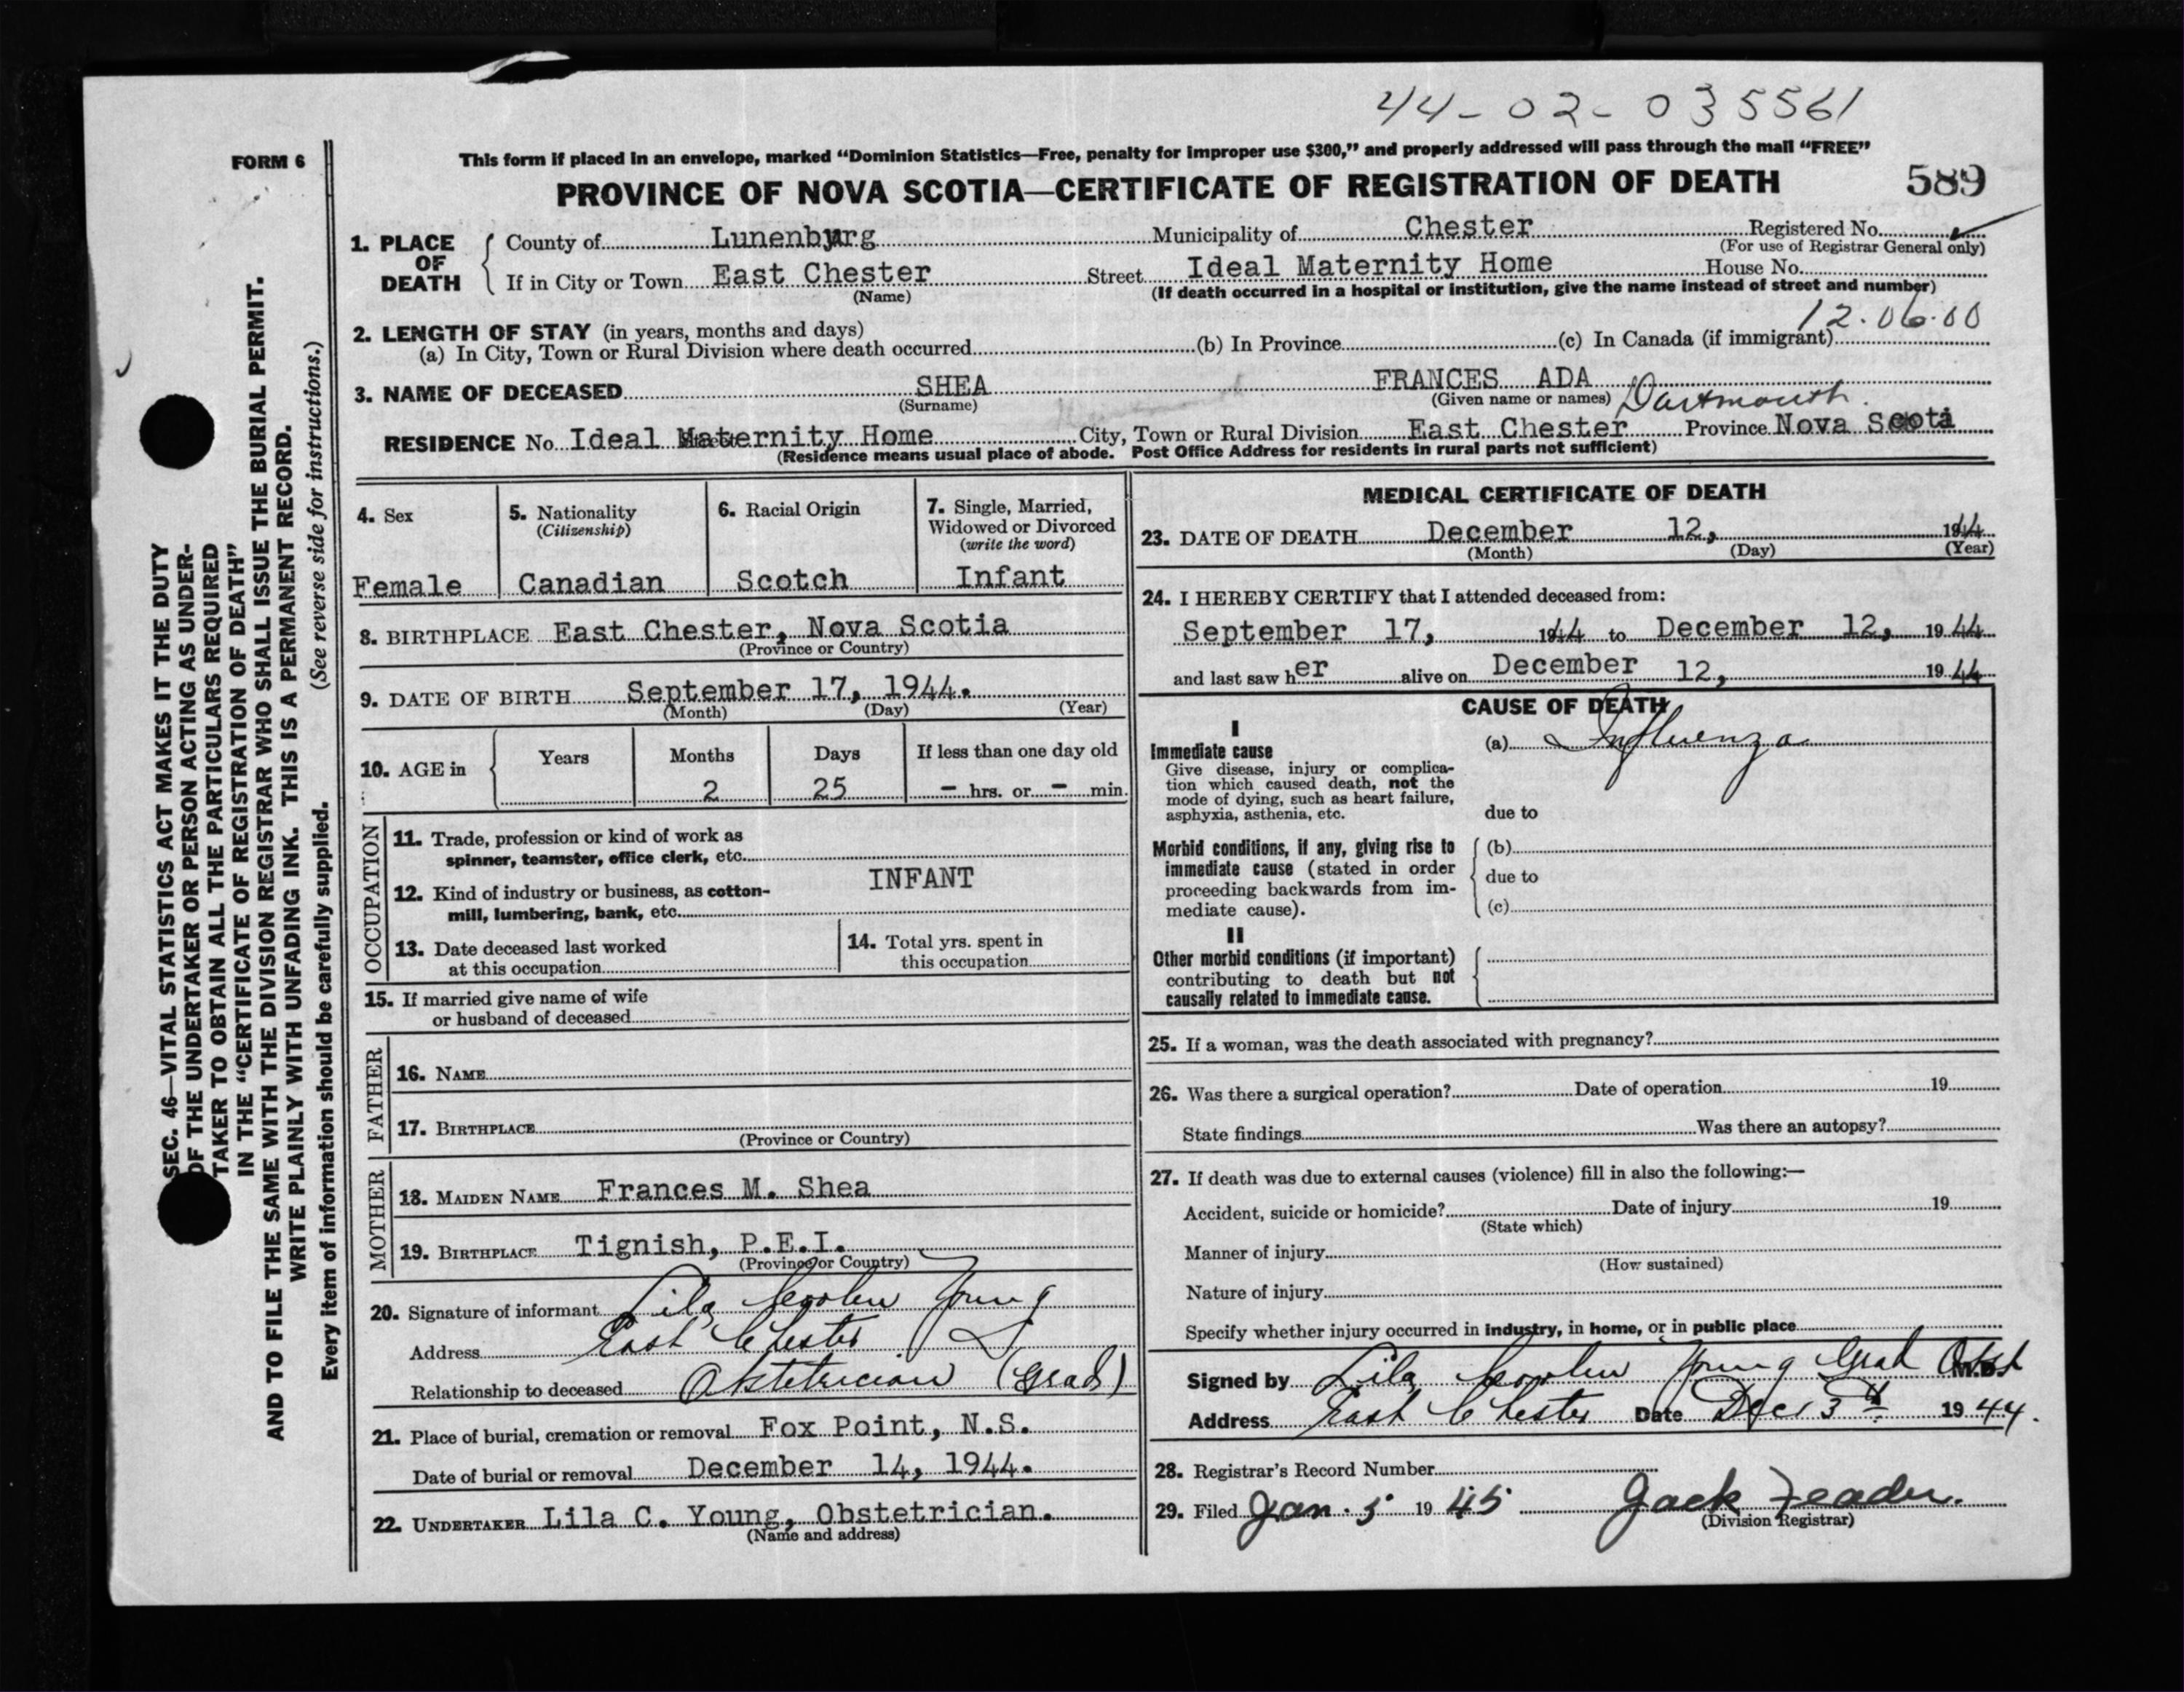 44-02-035561
FORM 6
This form if placed in an envelope, marked “Dominion Statistics—Free, penalty for improper use $300,” and properly addressed will pass through the mail “FREE”
PROVINCE OF NOVA SCOTIA—CERTIFICATE OF REGISTRATION OF DEATH
589
1. PLACE OF DEATH
County of Lunenburg Municipality of Chester Registered No.
(For use of Registrar General only)
If in City or Town East Chester Street Ideal Maternity Home House No.
(Name) (If death occurred in a hospital or institution, give the name instead of street and number)
12.06.00
2. LENGTH OF STAY (in years, months and days)
(a) In City, Town or Rural Division where death occurred (b) In Province (c) In Canada (if immigrant)
3. NAME OF DECEASED SHEA FRANCES ADA
(Surname) (Given name or names) Dartmouth.
RESIDENCE No. Ideal Maternity Home City, Town or Rural Division East Chester Province Nova Scoti
(Residence means usual place of abode. Post Office Address for residents in rural parts not sufficient)
4. Sex
Female
5. Nationality
(Citizenship)
Canadian
6. Racial Origin
Scotch
7. Single, Married,
Widowed or Divorced
(write the word)
Infant
8. BIRTHPLACE East Chester, Nova Scotia
(Province or Country)
9. DATE OF BIRTH September 17, 1944.
(Month) (Day) (Year)
10. AGE in Years Months Days If less than one day old
2 25 – hrs. or – min.
OCCUPATION
11. Trade, profession or kind of work as
spinner, teamster, office clerk, etc.
12. Kind of industry or business, as cotton-
mill, lumbering, bank, etc.
INFANT
13. Date deceased last worked
at this occupation
14. Total yrs. spent in
this occupation
15. If married give name of wife
or husband of deceased
FATHER
16. NAME
17. BIRTHPLACE
(Province or Country)
MOTHER
18. MAIDEN NAME Frances M. Shea
19. BIRTHPLACE Tignish, P.E.I.
(Province or Country)
20. Signature of informant Lila Coolen Young
Address East Chester
Relationship to deceased Obstetrician (Grad)
21. Place of burial, cremation or removal Fox Point, N.S.
Date of burial or removal December 14, 1944.
22. UNDERTAKER Lila C. Young, Obstetrician.
(Name and address)
MEDICAL CERTIFICATE OF DEATH
23. DATE OF DEATH December 12, 1944
(Month) (Day) (Year)
24. I HEREBY CERTIFY that I attended deceased from:
September 17, 1944 to December 12, 1944
and last saw her alive on December 12, 1944
CAUSE OF DEATH
I
Immediate cause
Give disease, injury or complica-
tion which caused death, not the
mode of dying, such as heart failure,
asphyxia, asthenia, etc.
(a) Influenza
due to
Morbid conditions, if any, giving rise to
immediate cause (stated in order
proceeding backwards from im-
mediate cause).
(b)
due to
(c)
II
Other morbid conditions (if important)
contributing to death but not
causally related to immediate cause.
25. If a woman, was the death associated with pregnancy?
26. Was there a surgical operation? Date of operation 19
State findings Was there an autopsy?
27. If death was due to external causes (violence) fill in also the following:—
Accident, suicide or homicide? Date of injury 19
(State which)
Manner of injury
(How sustained)
Nature of injury
Specify whether injury occurred in industry, in home, or in public place
Signed by Lila Coolen Young Grad Obst M.D.
Address East Chester Date Dec 1944.
28. Registrar's Record Number
29. Filed Jan. 5 1945 Jack
(Division Registrar)
SEC. 46—VITAL STATISTICS ACT MAKES IT THE DUTY
OF THE UNDERTAKER OR PERSON ACTING AS UNDER-
TAKER TO OBTAIN ALL THE PARTICULARS REQUIRED
IN THE “CERTIFICATE OF REGISTRATION OF DEATH”
AND TO FILE THE SAME WITH THE DIVISION REGISTRAR WHO SHALL ISSUE THE BURIAL PERMIT.
WRITE PLAINLY WITH UNFADING INK. THIS IS A PERMANENT RECORD.
Every item of information should be carefully supplied. (See reverse side for instructions.)